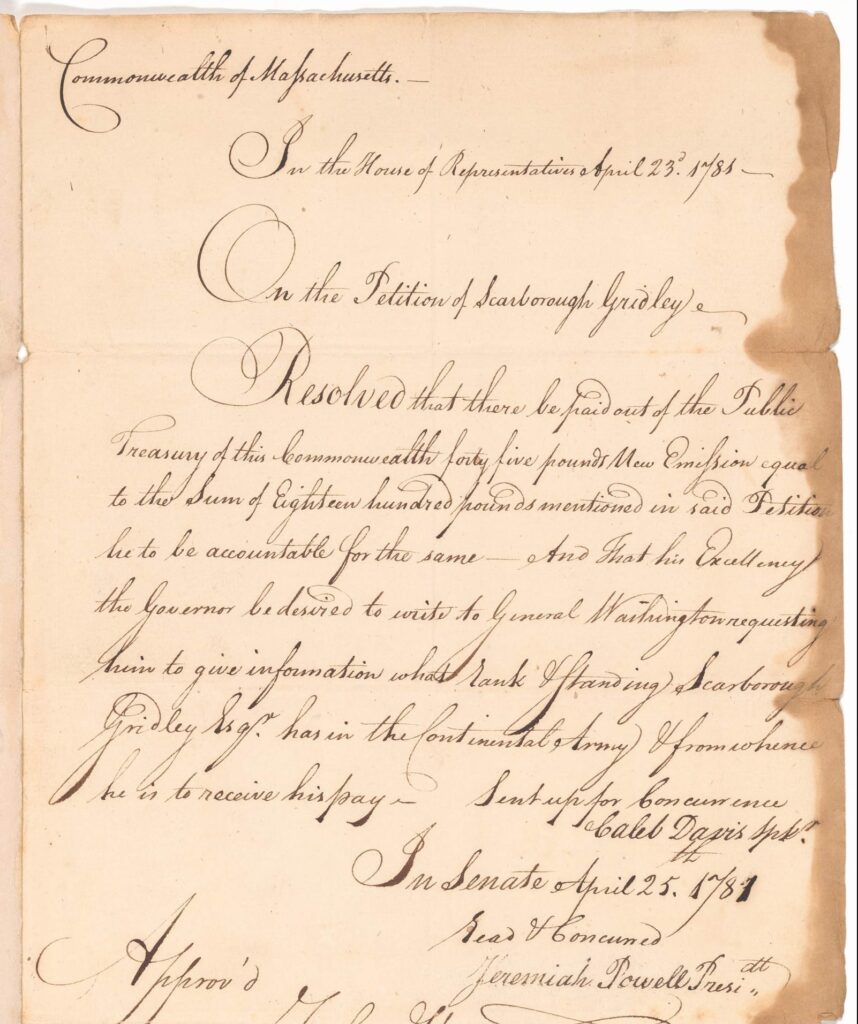 Commonwealth of Massachusetts. —
In the House of Representatives April 23d. 1781 —
On the Petition of Scarborough Gridley
Resolved that there be paid out of the Public
Treasury of this Commonwealth forty five pounds New Emission equal
to the Sum of Eighteen hundred pounds mentioned in said Petition
he to be accountable for the same — And That his Excellency
the Governor be desired to write to General Washington requesting
him to give information what rank & standing Scarborough
Gridley Esqr. has in the Continental Army & from whence
he is to receive his pay — Sent up for Concurrence
Caleb Davis Spkr.
In Senate April 25.th 1781
Read & Concurred
Jeremiah Powell Presidtt
Approv'd